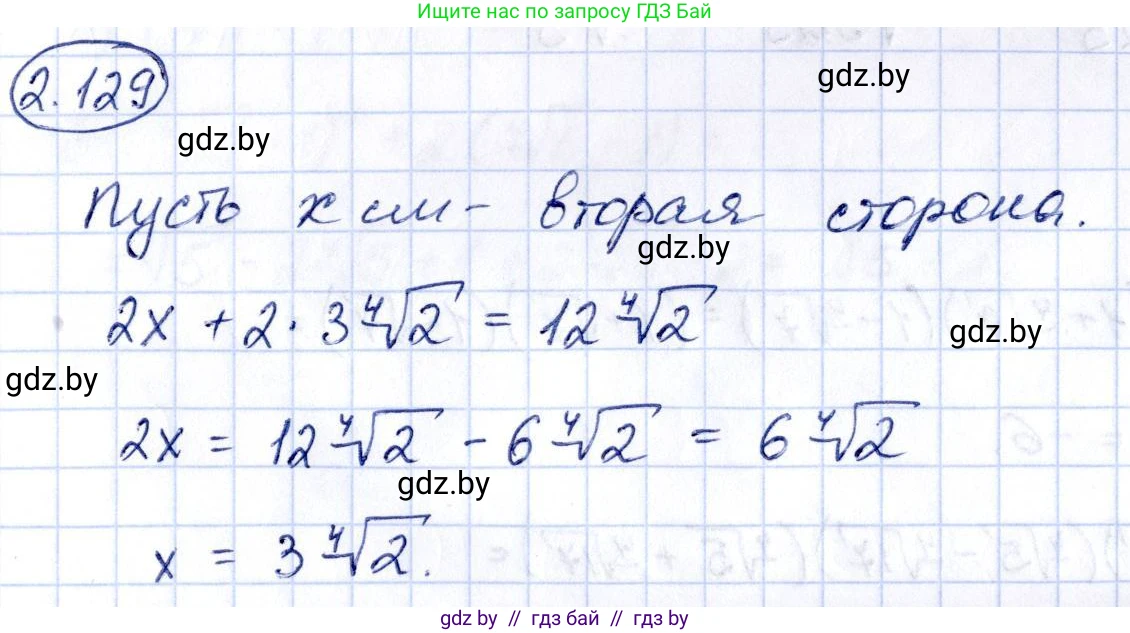 Ищите нас по запросу ГДЗ Бай
2.129
gdz.by
gdz.by
Пусть x см - вторая сторона.
gdz.by
2x + 2 · 3∜2 = 12∜2
gdz.by
gdz.by
2x = 12∜2 - 6∜2 = 6∜2
gdz.by
x = 3∜2.
gdz by // гдз бай // gdz by